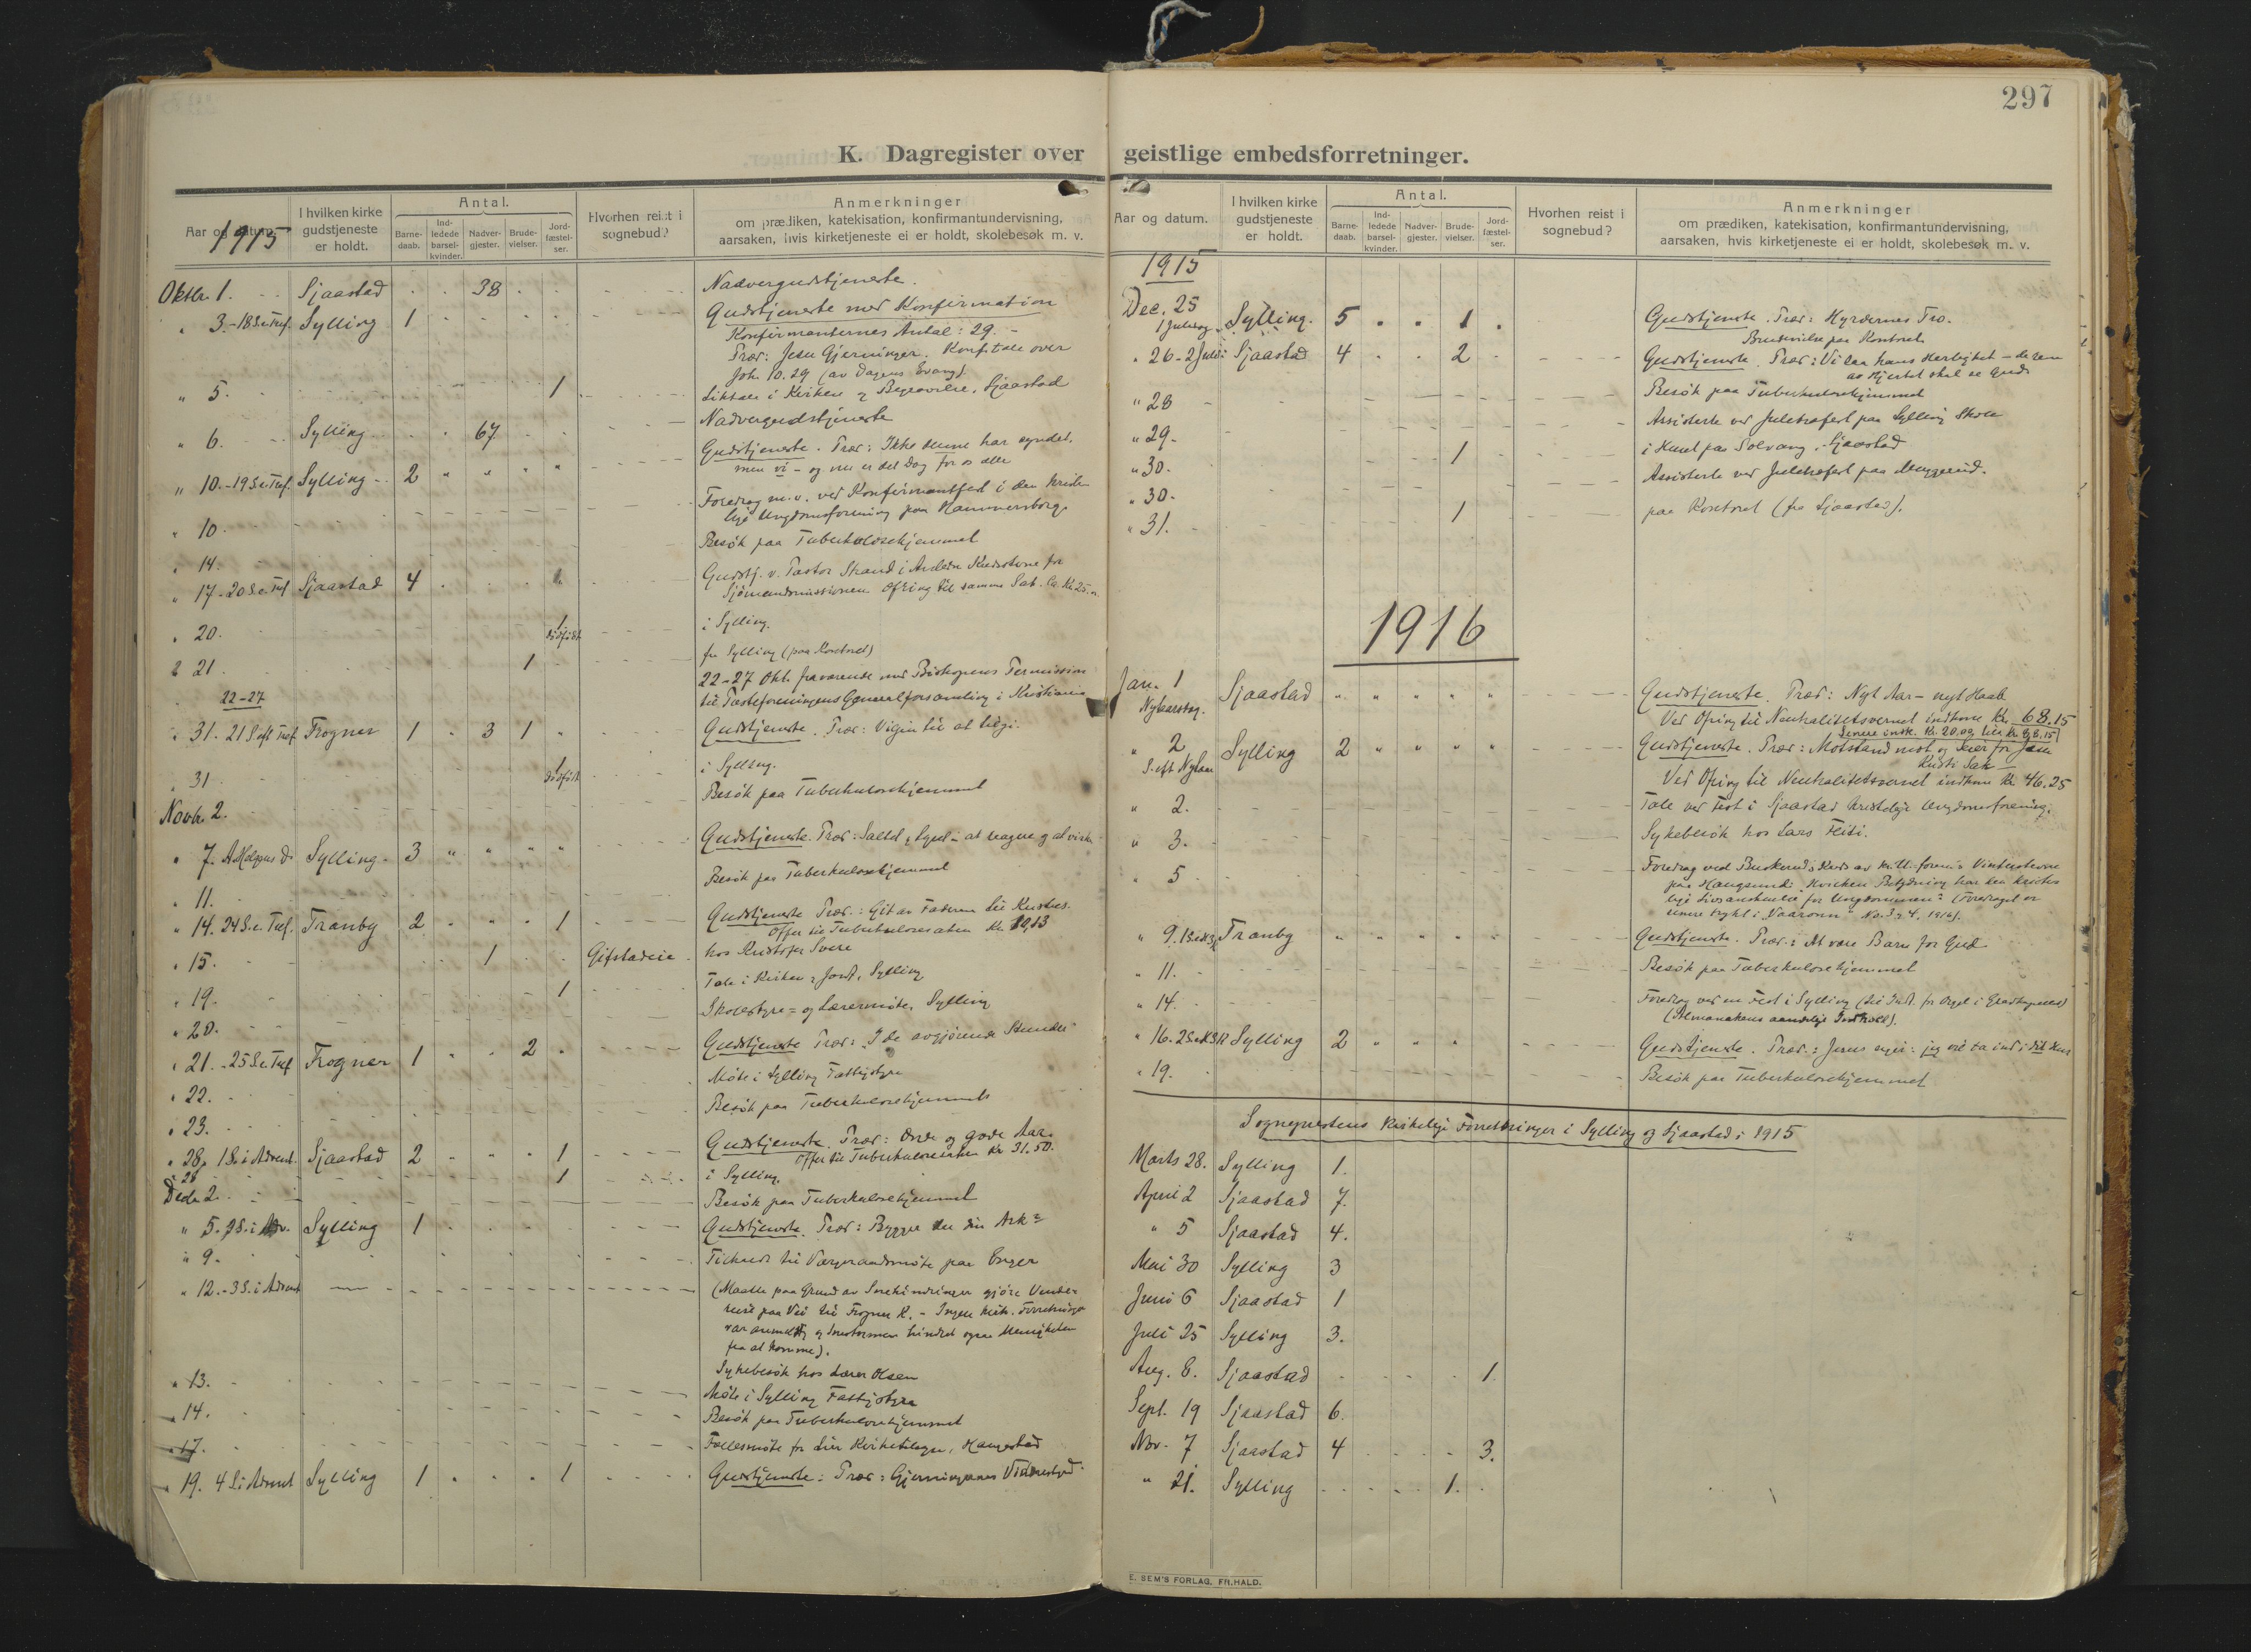 297
K. Dagregister over geistlige embedsforretninger.
Aar og datum.
1915
I hvilken kirke gudstjeneste er holdt.
Antal.
Barne-daab.
Ind-ledede barsel-kvinder.
Nadver-gjester.
Brude-vielser.
Jord-fæstel-ser.
Hvorhen reist i sognebud?
Anmerkninger
om prædiken, katekisation, konfirmantundervisning,
aarsaken, hvis kirketjeneste ei er holdt, skolebesøk m. v.
Oktbr. 1. Sjaastad 38 Nadvergudstjeneste.
" 3.-18 S.e.Tref. Sylling 1 Gudstjeneste med Konfirmation
Konfirmanternes Antal: 29. -
Præd: Jesu Gjerninger. Konf.tale over
Joh. 10.29 (av Dagens Evang.)
" 5. 1 Liktale i Kirken og Begravelse, Sjaastad
" 6. Sylling 67 Nadvergudstjeneste
" 10.-19 S.e.Tref. Sylling 2 Gudstjeneste. Præd: Ikke denne har syndet,
men vi - og nu er det Dag for os alle
" 10. Foredrag m.v. ved Konfirmantfest i den kriste-
lige Ungdomsforening paa Hammersborg.
" 14. Besøk paa Tuberkulosehjemmet
" 17-20 S.e.Tref Sjaastad 4 1 Gudstj. v. Pastor Strand i Anledn. for
Sjømandsmissionen Ofring til samme Kr. 25.
" 20. 1 dødfødt i Sylling.
" 21. 1 fra Sylling (paa Kontoret)
22-27 22-27 Okt. fraværende med Biskopens Permission
til Præsteforeningens Generalforsamling i Kristiania
" 31. 21 S.eft Tref. Frogner 1 3 1 Gudstjeneste. Præd: Viljen til at tilgi.
" 31 1 dødfødt i Sylling.
Novbr. 2. Besøk paa Tuberkulosehjemmet
" 7. A.Helgens D. Sylling 3 Gudstjeneste. Præd: Salt og Lys - at reagere og at virke
" 11. Besøk paa Tuberkulosehjemmet
" 14. 24 S.e.Tref. Tranby 2 1 Gudstjeneste Præd.: Git av Faderen til Kristus.
Offer til Tuberkulosesaken Kr. 10,13
" 15. 1 Gifstadeie hos Kristofer Svere
" 19. 1 Tale i Kirken, Jord. Sylling
" 20. Skolestyre= og Lærermøte, Sylling
" 21.-25 S.e.Tref Frogner 1 2 Gudstjeneste Præd: I de avgjørende Stunder
" 22. Møte i Sylling Fattigstyre
" 23. Besøk paa Tuberkulosehjemmet
" 28. 1 S. i Advent. Sjaastad 2 1 Gudstjeneste. Præd: Onde og gode Aar.
Offer til Tuberkulosesaken Kr 31.50.
" 28 1 i Sylling.
Decbr 2. Besøk paa Tuberkulosehjemmet
" 5. 2 S. i Adv. Sylling 1 Gudstjeneste. Præd: Bygger du din Ark?
" 9. Tilstede til Værgeraadsmøte paa Enger
" 12.-3 S. i Advent (Maatte paa Grund av Snehindringer gjøre Vende-
reise paa Vei til Frogner K. - Ingen kirk. Forretninger
var anmeldt og Snestormen hindret ogsaa Menigheten
fra at komme).
" 13. Sykebesøk hos Lærer Olsen
" 14. Møte i Sylling Fattigstyre
" 17. Besøk paa Tuberkulosehjemmet
Fællesmøte for Lier Kirketilsyn, Haugestad
" 19. 4 S. i Advent Sylling 1 1 Gudstjeneste: Præd: Gjerningernes Vidnesbyrd
Aar og datum.
I hvilken kirke gudstjeneste er holdt.
Antal.
Barne-daab.
Ind-ledede barsel-kvinder.
Nadver-gjester.
Brude-vielser.
Jord-fæstel-ser.
Hvorhen reist i sognebud?
Anmerkninger
om prædiken, katekisation, konfirmantundervisning,
aarsaken, hvis kirketjeneste ei er holdt, skolebesøk m. v.
1915
Dec. 25 1 Juledag Sylling. 5 1 Gudstjeneste. Præd: Hyrdernes Tro.
Brudevielse paa Kontoret
" 26-2 Juled. Sjaastad 4 2 Gudstjeneste. Præd: Vi saa hans Herlighet - de rene
av Hjertet skal se Gud.
" 28 Besøk paa Tuberkulosehjemmet
" 29. Assisterte ved Juletræfest paa Sylling Skole
" 30. 1 i Huset paa Solvang, Sjaastad
" 30. Assisterte ved Juletræfest paa Muggerud.
" 31. 1 paa Kontoret (fra Sjaastad).
1916
Jan. 1 Nytaarsdag. Sjaastad Gudstjeneste. Præd: Nyt Aar - nyt Haab
Ved Ofring til Neutralitetsvernet indkom Kr. 68.15
Senere indk. Kr. 20.00 til Kr 88.15
" 2 S. eft Nytaar Sylling 2 Gudstjeneste. Præd: Motstand mot og Seier for Jesu
Kristi Sak
Ved Ofring til Neutralitetsvernet indkom Kr 46.25
" 2. Tale ved Fest i Sjaastad kristelige Ungdomsforening.
" 3. Sykebesøk hos Lars
" 5 Foredrag ved Buskeruds Kreds av Kr. U. foren.s Vinterstevne
paa Haugsund: Hvilken Betydning har den kriste-
lige Livsanskuelse for Ungdommen? (Foredraget er
senere trykt i "Vaaronn" No. 3 og 4, 1916).
" 9. 1 S.e.H3K Tranby Gudstjeneste. Præd.: At være Barn for Gud
" 11. Besøk paa Tuberkulosehjemmet
" 14. Foredrag ved en Fest i Sylling (til Indt. for Orgel i )
(Almanakens aandelige Indhold).
" 16. 2 S.e.H3K Sylling 2 Gudstjeneste. Præd.: Jesus siger: jeg vil ta ind i dit Hus
" 19. Besøk paa Tuberkulosehjemmet
Sogneprestens kirkelige Forretninger i Sylling og Sjaastad i 1915
Marts 28. Sylling 1.
April 2 Sjaastad 7.
" 5 Sjaastad 4.
Mai 30 Sylling 3
Juni 6 Sjaastad 1
Juli 25 Sylling 3.
Aug. 8. Sjaastad 1.
Sept. 19 Sjaastad 6.
Nov. 7 Sjaastad 4 3.
" 21. Sylling 1.
E. SEM'S FORLAG, FR.HALD.